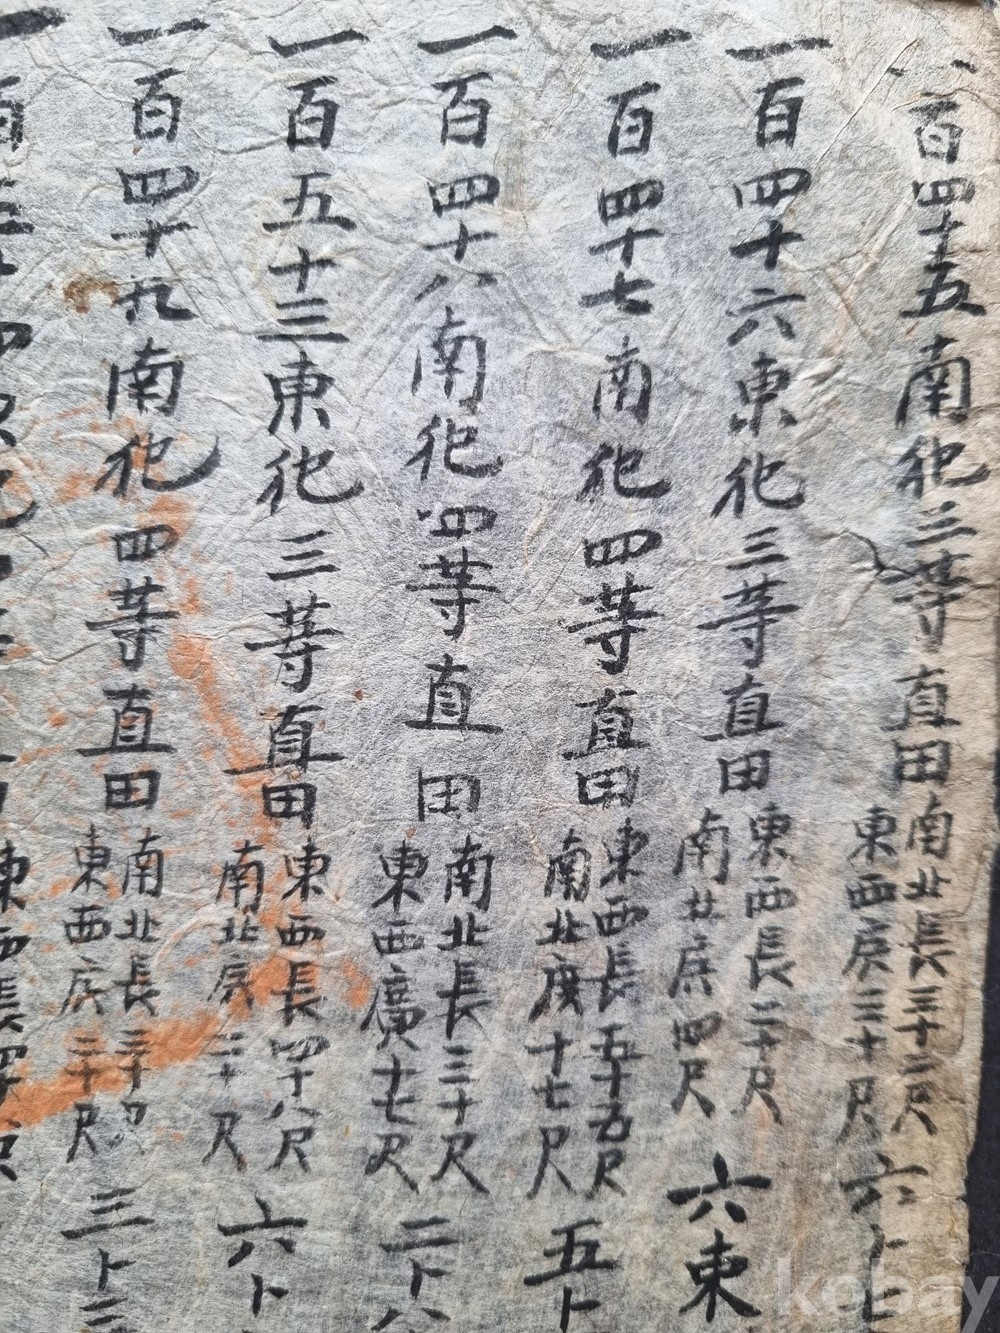 一百四十五南犯三等直田
南北長三十二尺
東西広三十尺
六卜七
一百四十六東犯三等直田
東西長二十尺
南北広四尺
六束
一百四十七南犯四等直田
東西長五十五尺
南北広十七尺
五卜
一百四十八南犯四等直田
南北長三十尺
東西廣十七尺
二卜八
一百五十三東犯三等直田
東西長四十八尺
南北広二十尺
六卜
一百四十九南犯四等直田
南北長三十尺
東西広二十尺
三卜三
kobay